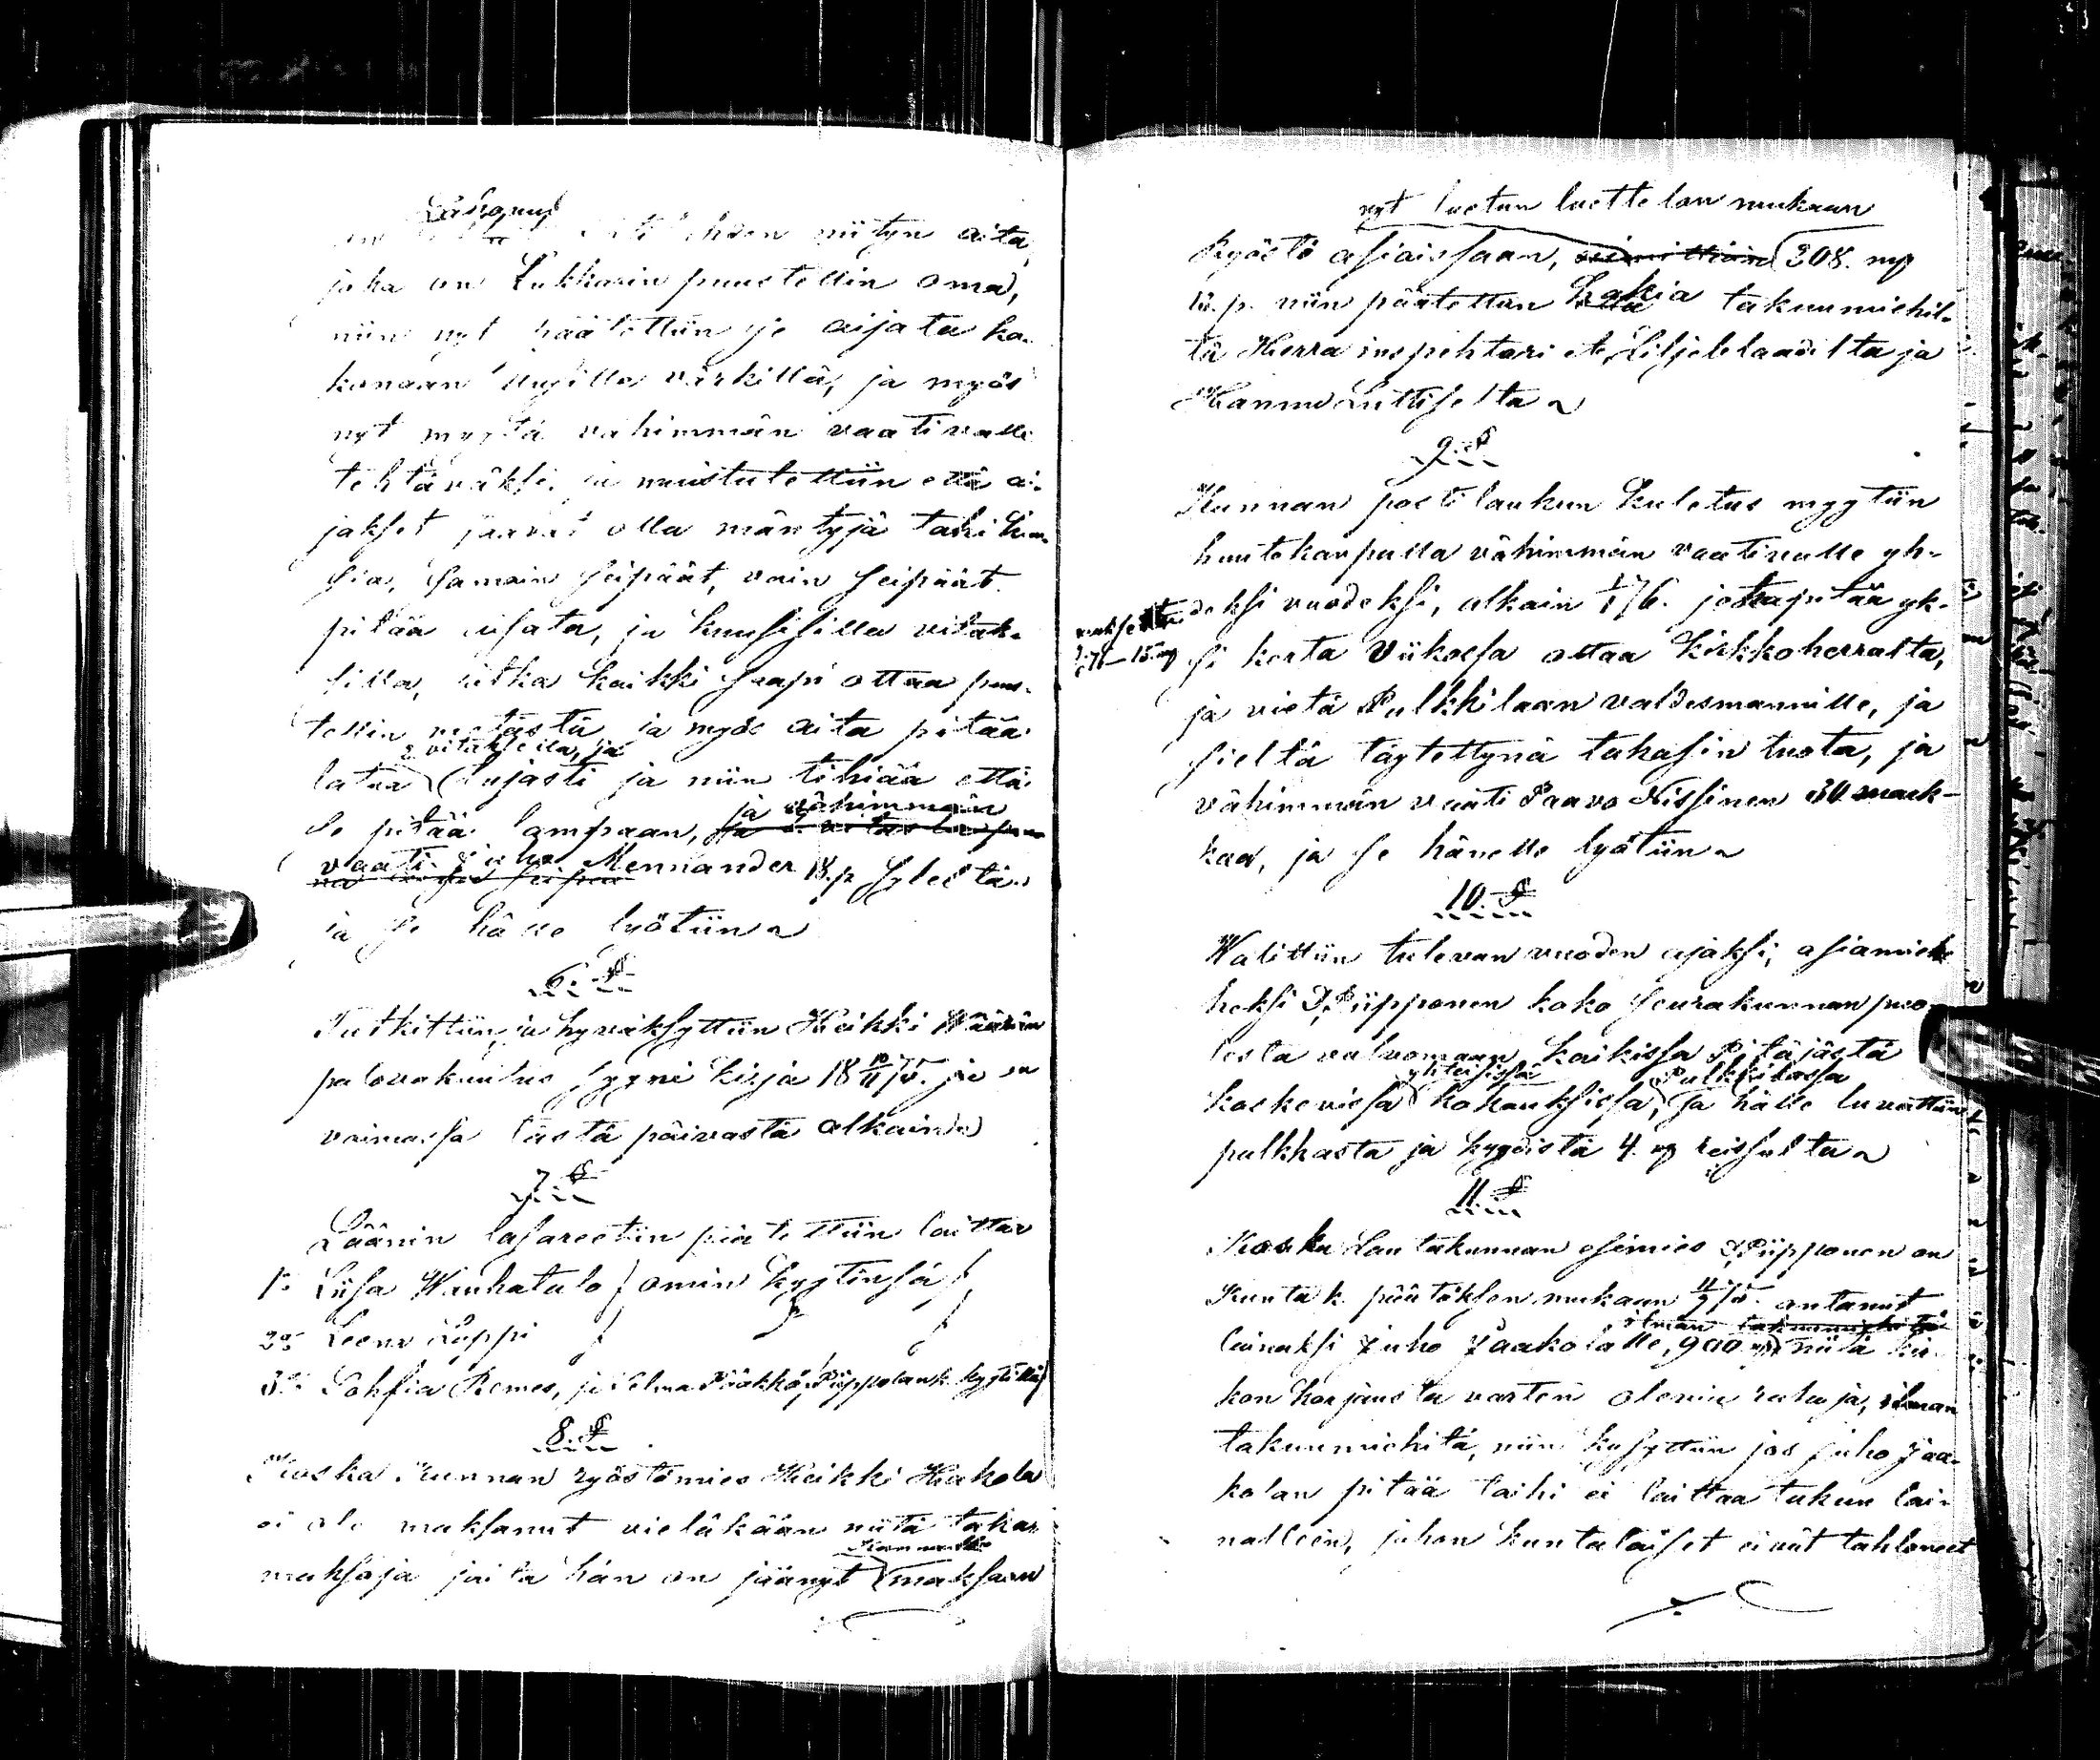 niityn aita,
joka on Lukkarin puustellin oma,
niin nyt päätettiin se aijata ko-
konaan uudella värkillä, ja myös
nyt myytä vähimmän vaativalle
tehtäväksi, ja muistutettiin että ai-
jakset pitävät olla mäntyjä tahi kuu-
sia, samoin seipäät, vain seipäät
pitää aisata, ja kuusisilla vitak-
silla, jotka kaikki saapi ottaa puus-
tellin metästä ja myös aita pitää
2 vitaksella, ja
latua (lujasti ja niin tihiää että
ja vähimmän
se pitää lampaan,
vaati Juho Mennander 18. p syleltä
ja se hälle lyötiin
6. §
Tutkittiin, ja hyväksyttiin Heikki Määtän
palovakuutus syyni kirja 18 10/11 75. ja on
voimassa tästä päivästä alkain
7. §
Läänin lasareetiin päätettiin laittaa
1o Liisa Wanhatalo } omin kyytinsä
2o Leena Läppi }
3o Sohfia Remes, ja Selma Pöökkö, Piippolan k. kyytillä
8. §
Koska Kunnan ryöstömies Heikki Hakola
ei ole maksanut vieläkään niitä takav.
Kunnalle
maksoja joita hän on jäänyt (maksaan
nyt luetun luettelon mukaan
Ryöstö asioissaan, 308. mp
12. p. niin päätettiin hakia takuumiehil-
tä Herra inspehtori A. Liljebladilta ja
Hannu Luttiselta
9. §
Kunnan posti laukun kuletus myytiin
huutokaupalla vähimmän vaativalle yh-
deksi vuodeksi, alkain 1/1 76. joka pitää yk-
maksettu
1/7 76 — 15 mp
si kerta Viikossa ottaa kirkkoherralta,
ja vietä Pulkkilaan valdesmannille, ja
sieltä täytettynä takasin tuota, ja
vähimmän vaati Paavo Nissinen 30 mark-
kaa, ja se hänelle lyötiin
10. §
Walittiin tulevan vuoden ajaksi, asiamie
heksi J. Piipponen koko seurakunnan puo-
lesta valvomaan kaikissa Pitäjästä
yhteisissä Pulkkilassa
koskevissa kokouksissa, ja hälle luvattiin
palkkasta ja kyydistä 4. mp reissulta
11. §
Koska Lautakunnan esimies J. Piipponen on
Kuntak. päätöksen mukaan 11/9 75. antanut
ilman takuumiehitä
lainaksi Juho Jaakolalle, 900 mp niitä kir-
kon korjausta varten olevia rahoja, ilman
takuumiehitä, niin kysyttiin jos Juho Jaa-
kolan pitää taihi ei laittaa takuu lai-
nalleen, johon kuntalaiset eivät tahtoneet